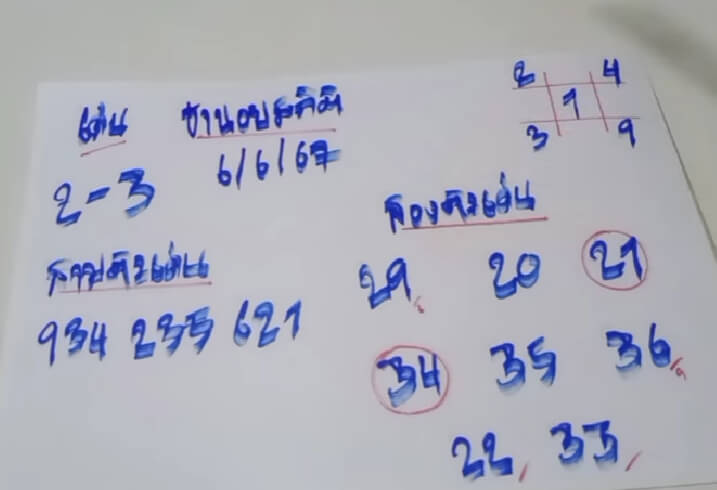 เด่น
6/6/67
2-3
2 4
1
3 9
สามตัวเด่น
934 235 621
สองตัวเด่น
29 20 21
34 35 36
22 33